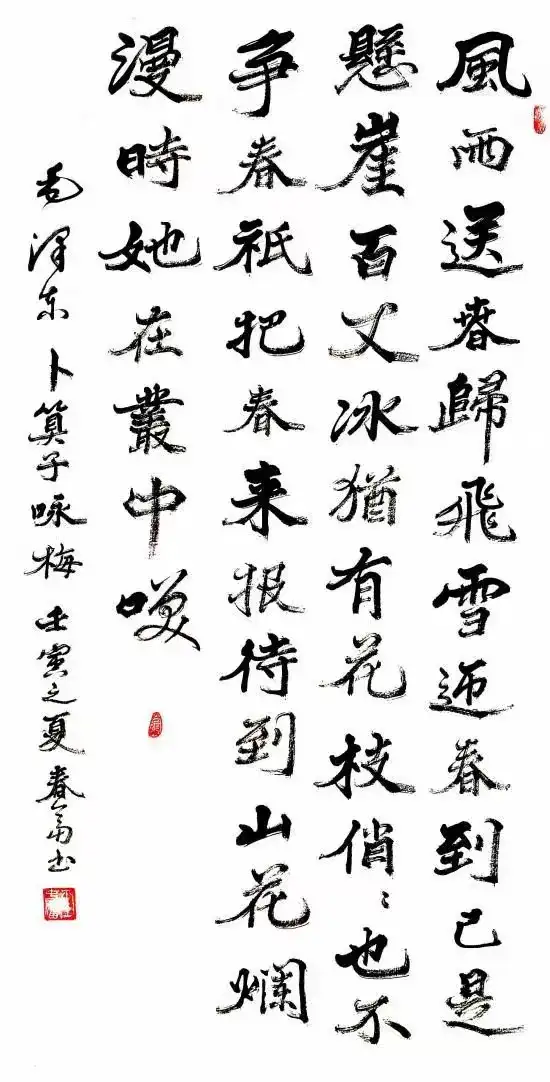 風雨送春歸飛雪迎春到已是
懸崖百丈冰猶有花枝俏〻也不
争春祇把春来报待到山花爛
漫時她在叢中咲
毛泽东卜算子咏梅壬寅之夏春书